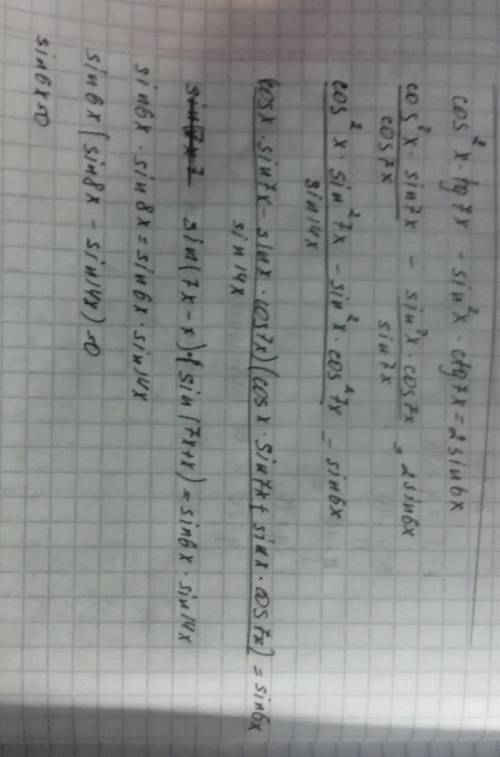 cos²x · tg7x - sin²x · ctg7x = 2 sin6x
cos²x · sin7x / cos7x - sin²x · cos7x / sin7x = 2 sin6x
cos²x · sin²7x - sin²x · cos²7x / sin14x = sin6x
(cosx · sin7x - sinx · cos7x)(cosx · sin7x + sinx · cos7x) / sin14x = sin6x
sin(7x - x) · sin(7x + x) = sin6x · sin14x
sin6x · sin8x = sin6x · sin14x
sin6x(sin8x - sin14x) = 0
sin6x = 0